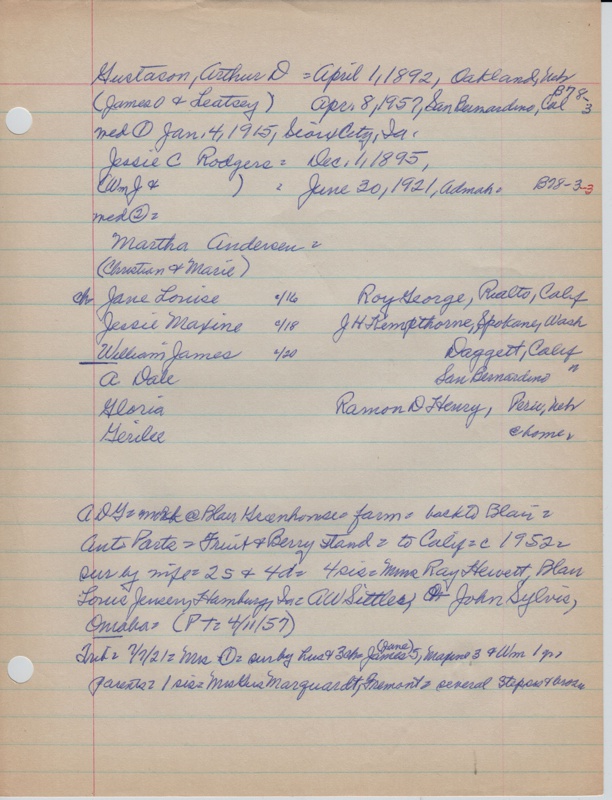 Gustason, Arthur D = April 1, 1892, Oakland, Neb
(James O & Leatsey) Apr. 8, 1957, San Bernardino, Cal B78-3
med ① Jan. 4, 1915, Sioux City, Ia.
Jessie C Rodgers = Dec. 1, 1895,
(Wm J & ) = June 30, 1921, Admah = B78-3-3
med ② =
Martha Andersen =
(Christian & Marie)
ch Jane Louise c/16 Roy George, Rialto, Calif
Jessie Maxine c/18 J H Kempthorne, Spokane, Wash
William James c/20 Daggett, Calif
A Dale San Bernardino "
Gloria Ramon D Henry, Peru, Neb
Gerilee @ home,
A D G = work @ Blair Greenhouse = farm = back to Blair =
Auto Parts = Fruit & Berry Stand = to Calif = c 1952 =
sur by wife = 2 s & 4 d = 4 sis = Mmes Ray Hewett, Blair
Louis Jensen, Hamburg, Ia = A W Sittler, John Sylvis,
Omaha = (PT = 4/11/57)
Trib = 7/7/21 = Mrs ① = sur by hus & 3 ch = James (Jane) 5, Maxine 3 & Wm 1 yr =
parents = 1 sis = Mrs Gus Marquardt, Fremont = several step sis & bros =